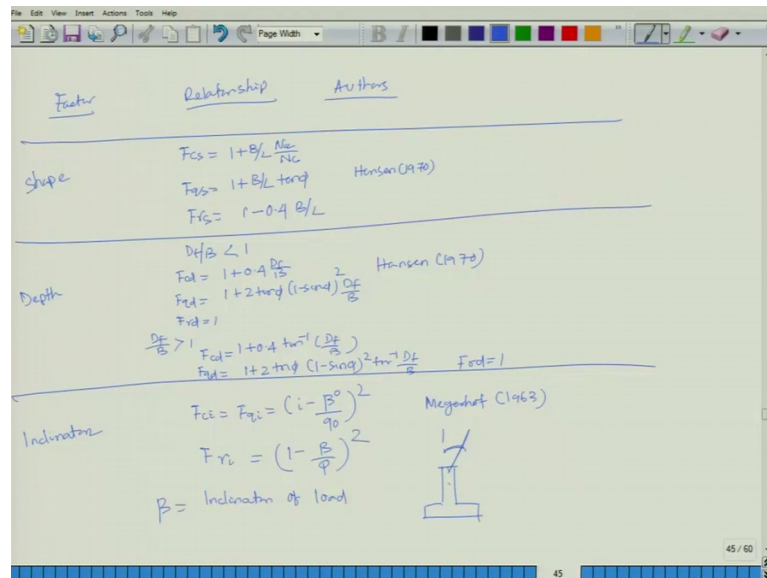 File Edit View Insert Actions Tools Help
Page Width
B I
Factor Relationship Authors
Shape
Fcs = 1+B/L Nq/Nc
Fqs = 1+B/L tanφ Hansen (1970)
Frs = 1-0.4 B/L
Depth
Df/B < 1
Fcd = 1+0.4 Df/B Hansen (1970)
Fqd = 1+2 tanφ (1-sinφ)² Df/B
Frd = 1
Df/B > 1
Fcd = 1+0.4 tan⁻¹ (Df/B)
Fqd = 1+2 tanφ (1-sinφ)² tan⁻¹ Df/B Frd = 1
Inclination
Fci = Fqi = (1- β°/90)² Meyerhof (1963)
Fri = (1- β/φ)²
β = Inclination of load
45 / 60
45